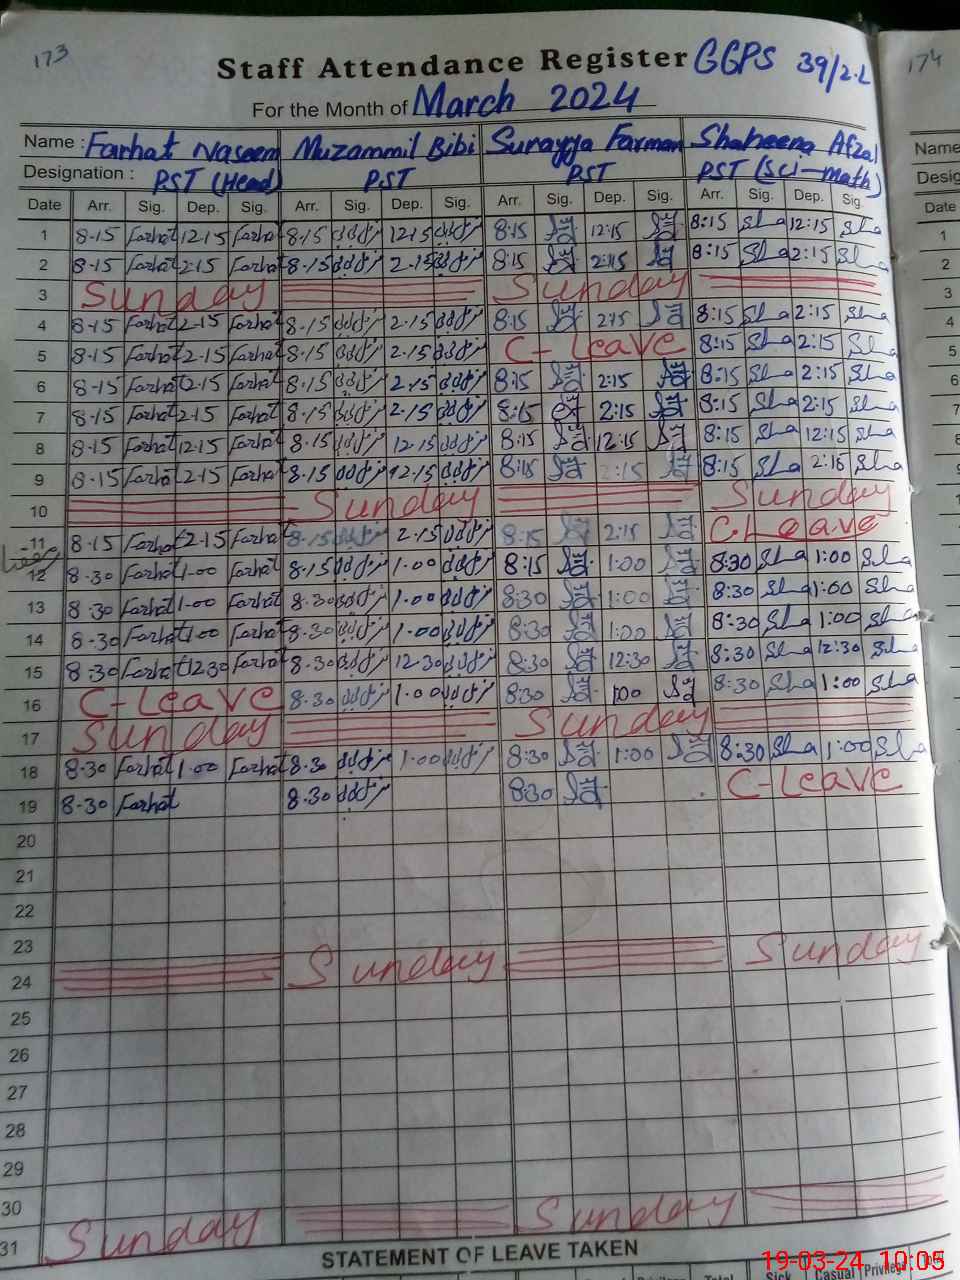 173
Staff Attendance Register GGPS 39/2.L
174
For the Month of March 2024
Name : Farhat Naseem Muzammil Bibi Surayya Farman Shaheena Afzal Name
Designation : PST (Head) PST PST PST (Sci-math) Desig
Date Arr. Sig. Dep. Sig. Arr. Sig. Dep. Sig. Arr. Sig. Dep. Sig. Arr. Sig. Dep. Sig. Date
1 8-15 Farhat 12-15 Farhat 8-15 12-15 8:15 12:15 8:15 Sha 12:15 Sha 1
2 8-15 Farhat 2-15 Farhat 8-15 2-15 8:15 2:15 8:15 Sha 2:15 Sha 2
3 Sunday Sunday 3
4 8-15 Farhat 2-15 Farhat 8-15 2-15 8:15 2:15 8:15 Sha 2:15 Sha 4
5 8-15 Farhat 2-15 Farhat 8-15 2-15 C-leave 8:15 Sha 2:15 Sha 5
6 8-15 Farhat 2-15 Farhat 8-15 2-15 8:15 2:15 8:15 Sha 2:15 Sha 6
7 8-15 Farhat 2-15 Farhat 8-15 2-15 8:15 2:15 8:15 Sha 2:15 Sha 7
8 8-15 Farhat 12-15 Farhat 8-15 12-15 8:15 12:15 8:15 Sha 12:15 Sha 8
9 8-15 Farhat 2-15 Farhat 8-15 12-15 8:15 2:15 8:15 Sha 2:15 Sha 9
10 Sunday Sunday 1
11 8-15 Farhat 2-15 Farhat 8-15 2-15 8:15 2:15 C.Leave 1
12 8-30 Farhat 1-00 Farhat 8-15 1-00 8:15 1:00 8:30 Sha 1:00 Sha
13 8-30 Farhat 1-00 Farhat 8-30 1-00 8:30 1:00 8:30 Sha 1:00 Sha
14 8-30 Farhat 1-00 Farhat 8-30 1-00 8:30 1:00 8:30 Sha 1:00 Sha
15 8-30 Farhat 12-30 Farhat 8-30 12-30 8:30 12:30 8:30 Sha 12:30 Sha
16 C-leave 8-30 1-00 8:30 1:00 8:30 Sha 1:00 Sha
17 Sunday Sunday
18 8-30 Farhat 1-00 Farhat 8-30 1-00 8:30 1:00 8:30 Sha 1:00 Sha
19 8-30 Farhat 8-30 8:30 C-leave
20
21
22
23
24 Sunday Sunday
25
26
27
28
29
30
31 Sunday Sunday
STATEMENT OF LEAVE TAKEN
19-03-24 10:05
Total Sick Casual Privilege Total